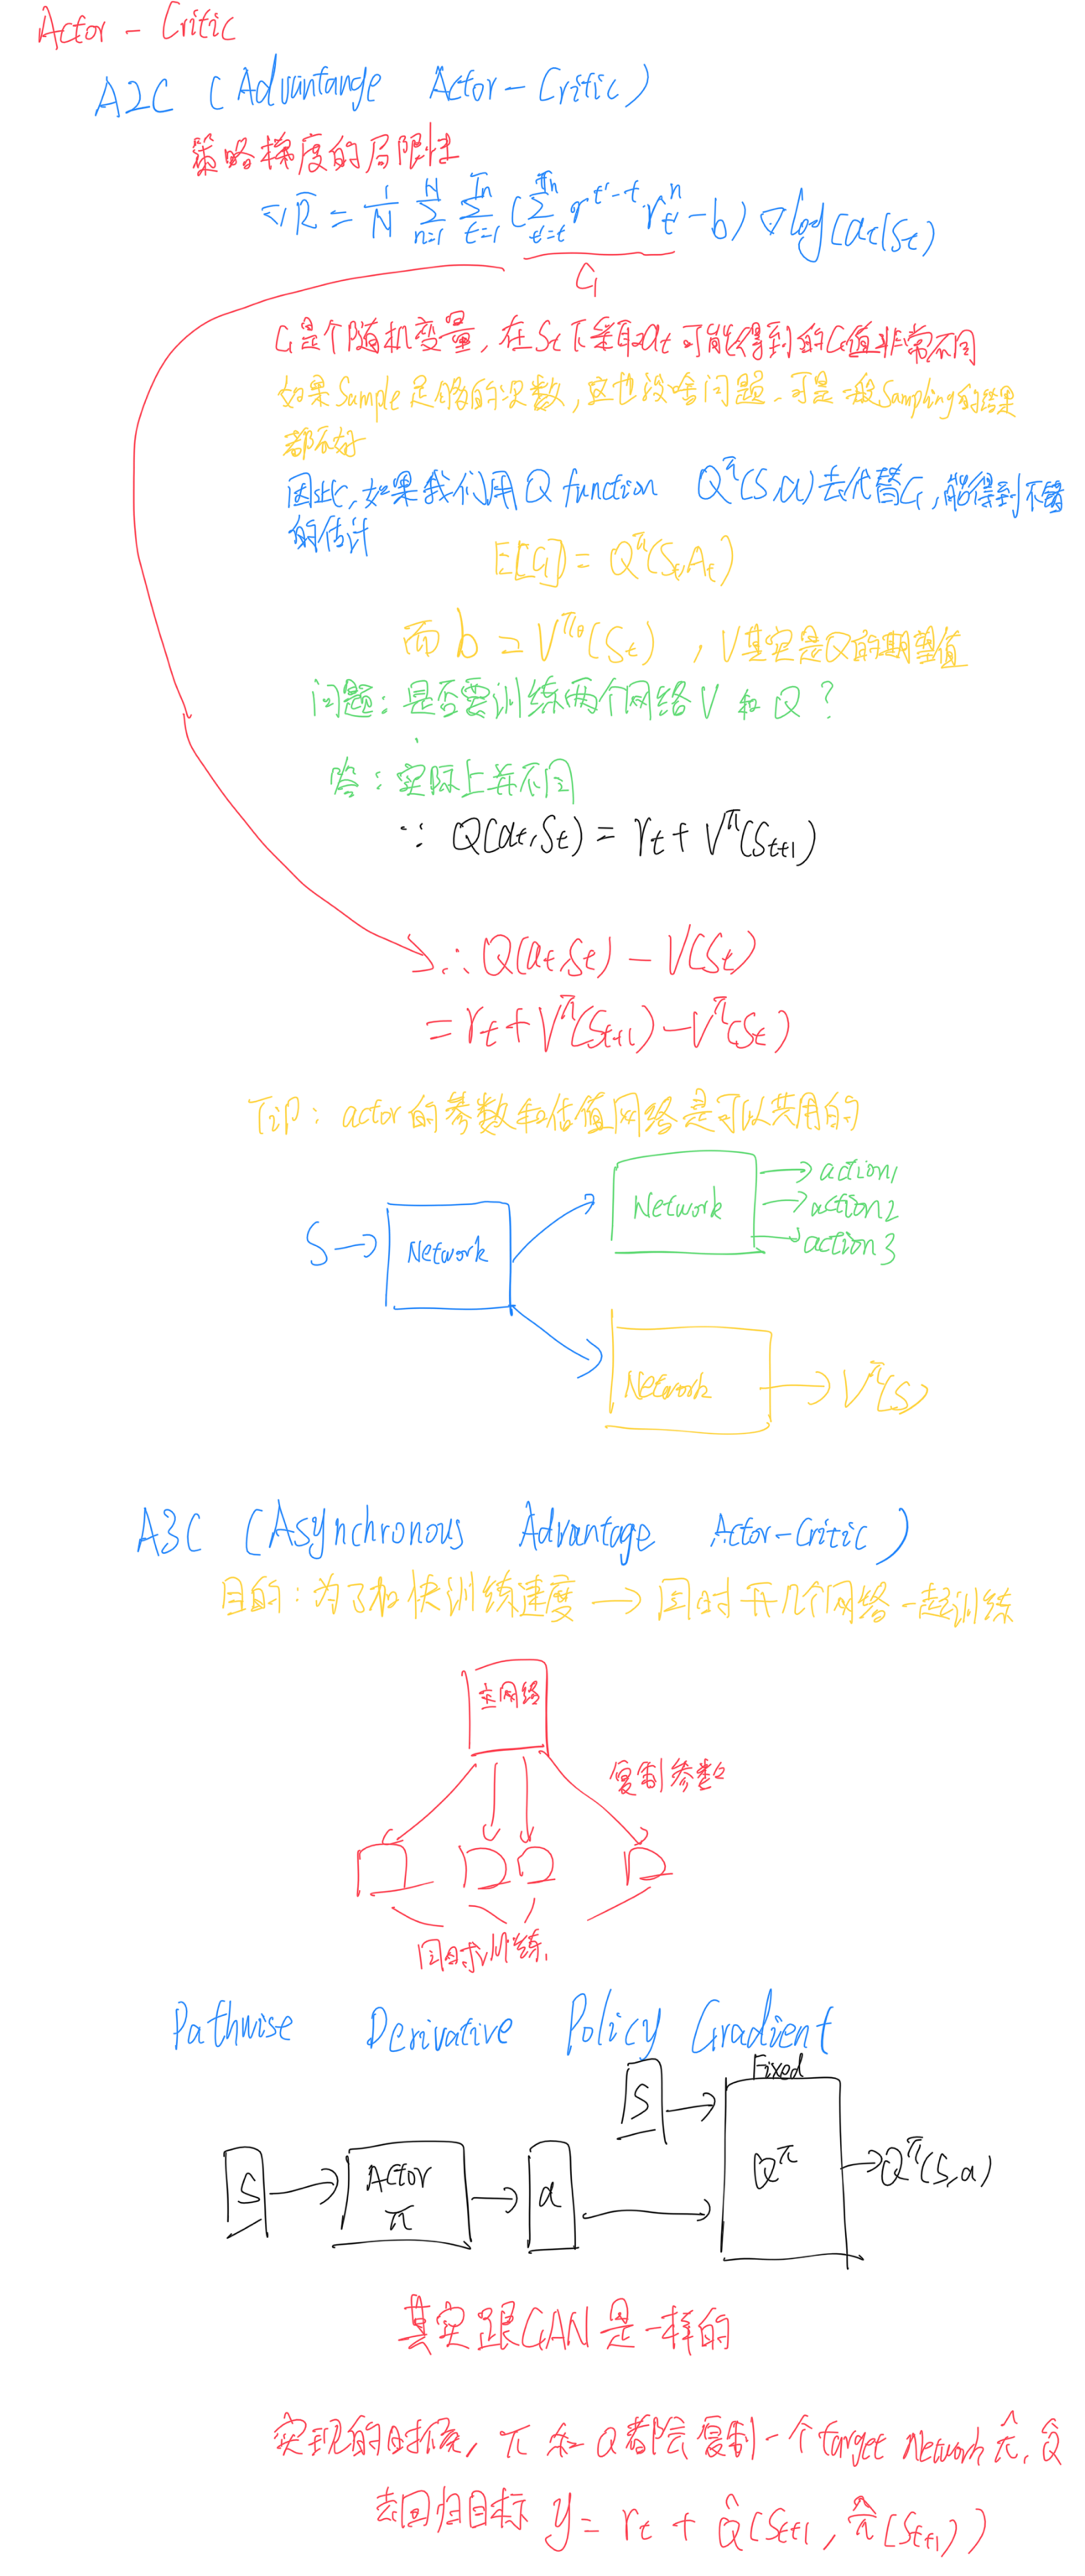 Actor - Critic
A2C (Advantange Actor-Critic)
策略梯度的局限性
∇R̄ = 1/N Σ_{n=1}^{N} Σ_{t=1}^{Tn} (Σ_{t'=t}^{Tn} r^{t'-t} r_{t'}^{n} - b) ∇log(at|St)
G
G是个随机变量, 在St下采取at可能得到的G值非常不同
如果Sample足够的次数, 这也没啥问题、可是一般Sampling的结果
都不好
因此, 如果我们用Q function Q^π(S,a)去代替G, 能得到不错
的估计
E[G] = Q^π(St,At)
而 b = V^{πθ}(St) , V其实是Q的期望值
问题: 是否要训练两个网络V和Q?
答: 实际上并不同
∵ Q(at,St) = rt + V^π(St+1)
∴ Q(at,St) - V(St)
= rt + V^π(St+1) - V^π(St)
Tip: actor的参数和估值网络是可以共用的
S Network
Network action1
action2
action3
Network V^π(S)
A3C (Asynchronous Advantage Actor-Critic)
目的: 为了加快训练速度 → 同时开几个网络一起训练
主网络
复制参数
同时训练
Pathwise Derivative Policy Gradient
Fixed
S
S Actor π a Q^π Q^π(S,a)
其实跟GAN是一样的
实现的时候, π和Q都会复制一个target Network π̂, Q̂
去回归目标 y = rt + Q̂(St+1, π̂(St+1))